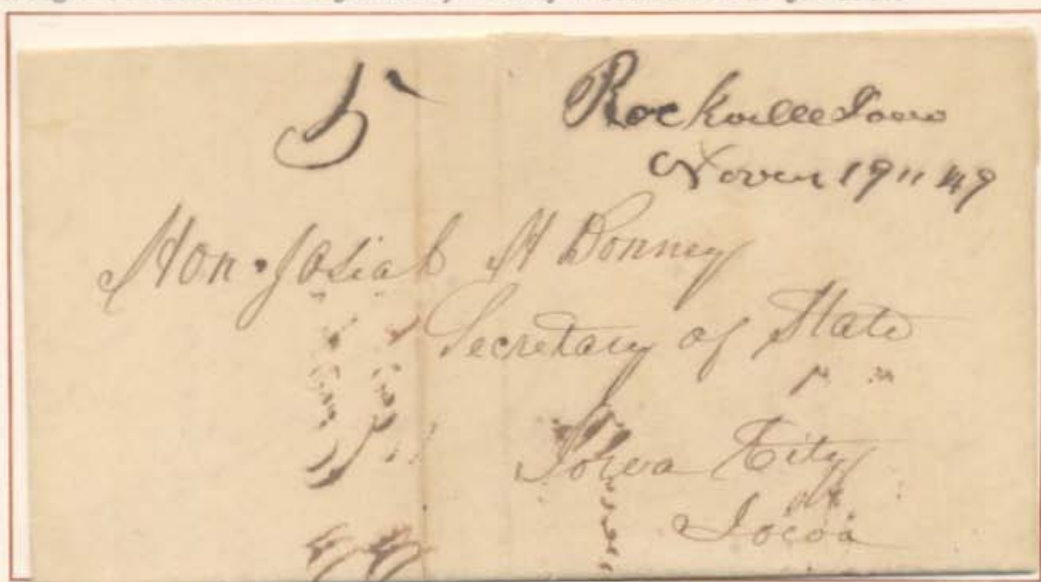 5
Rockville Iowa
Novem 19 " 49
Hon. Josiah H Bonney
Secretary of State
" "
Iowa City
Iowa